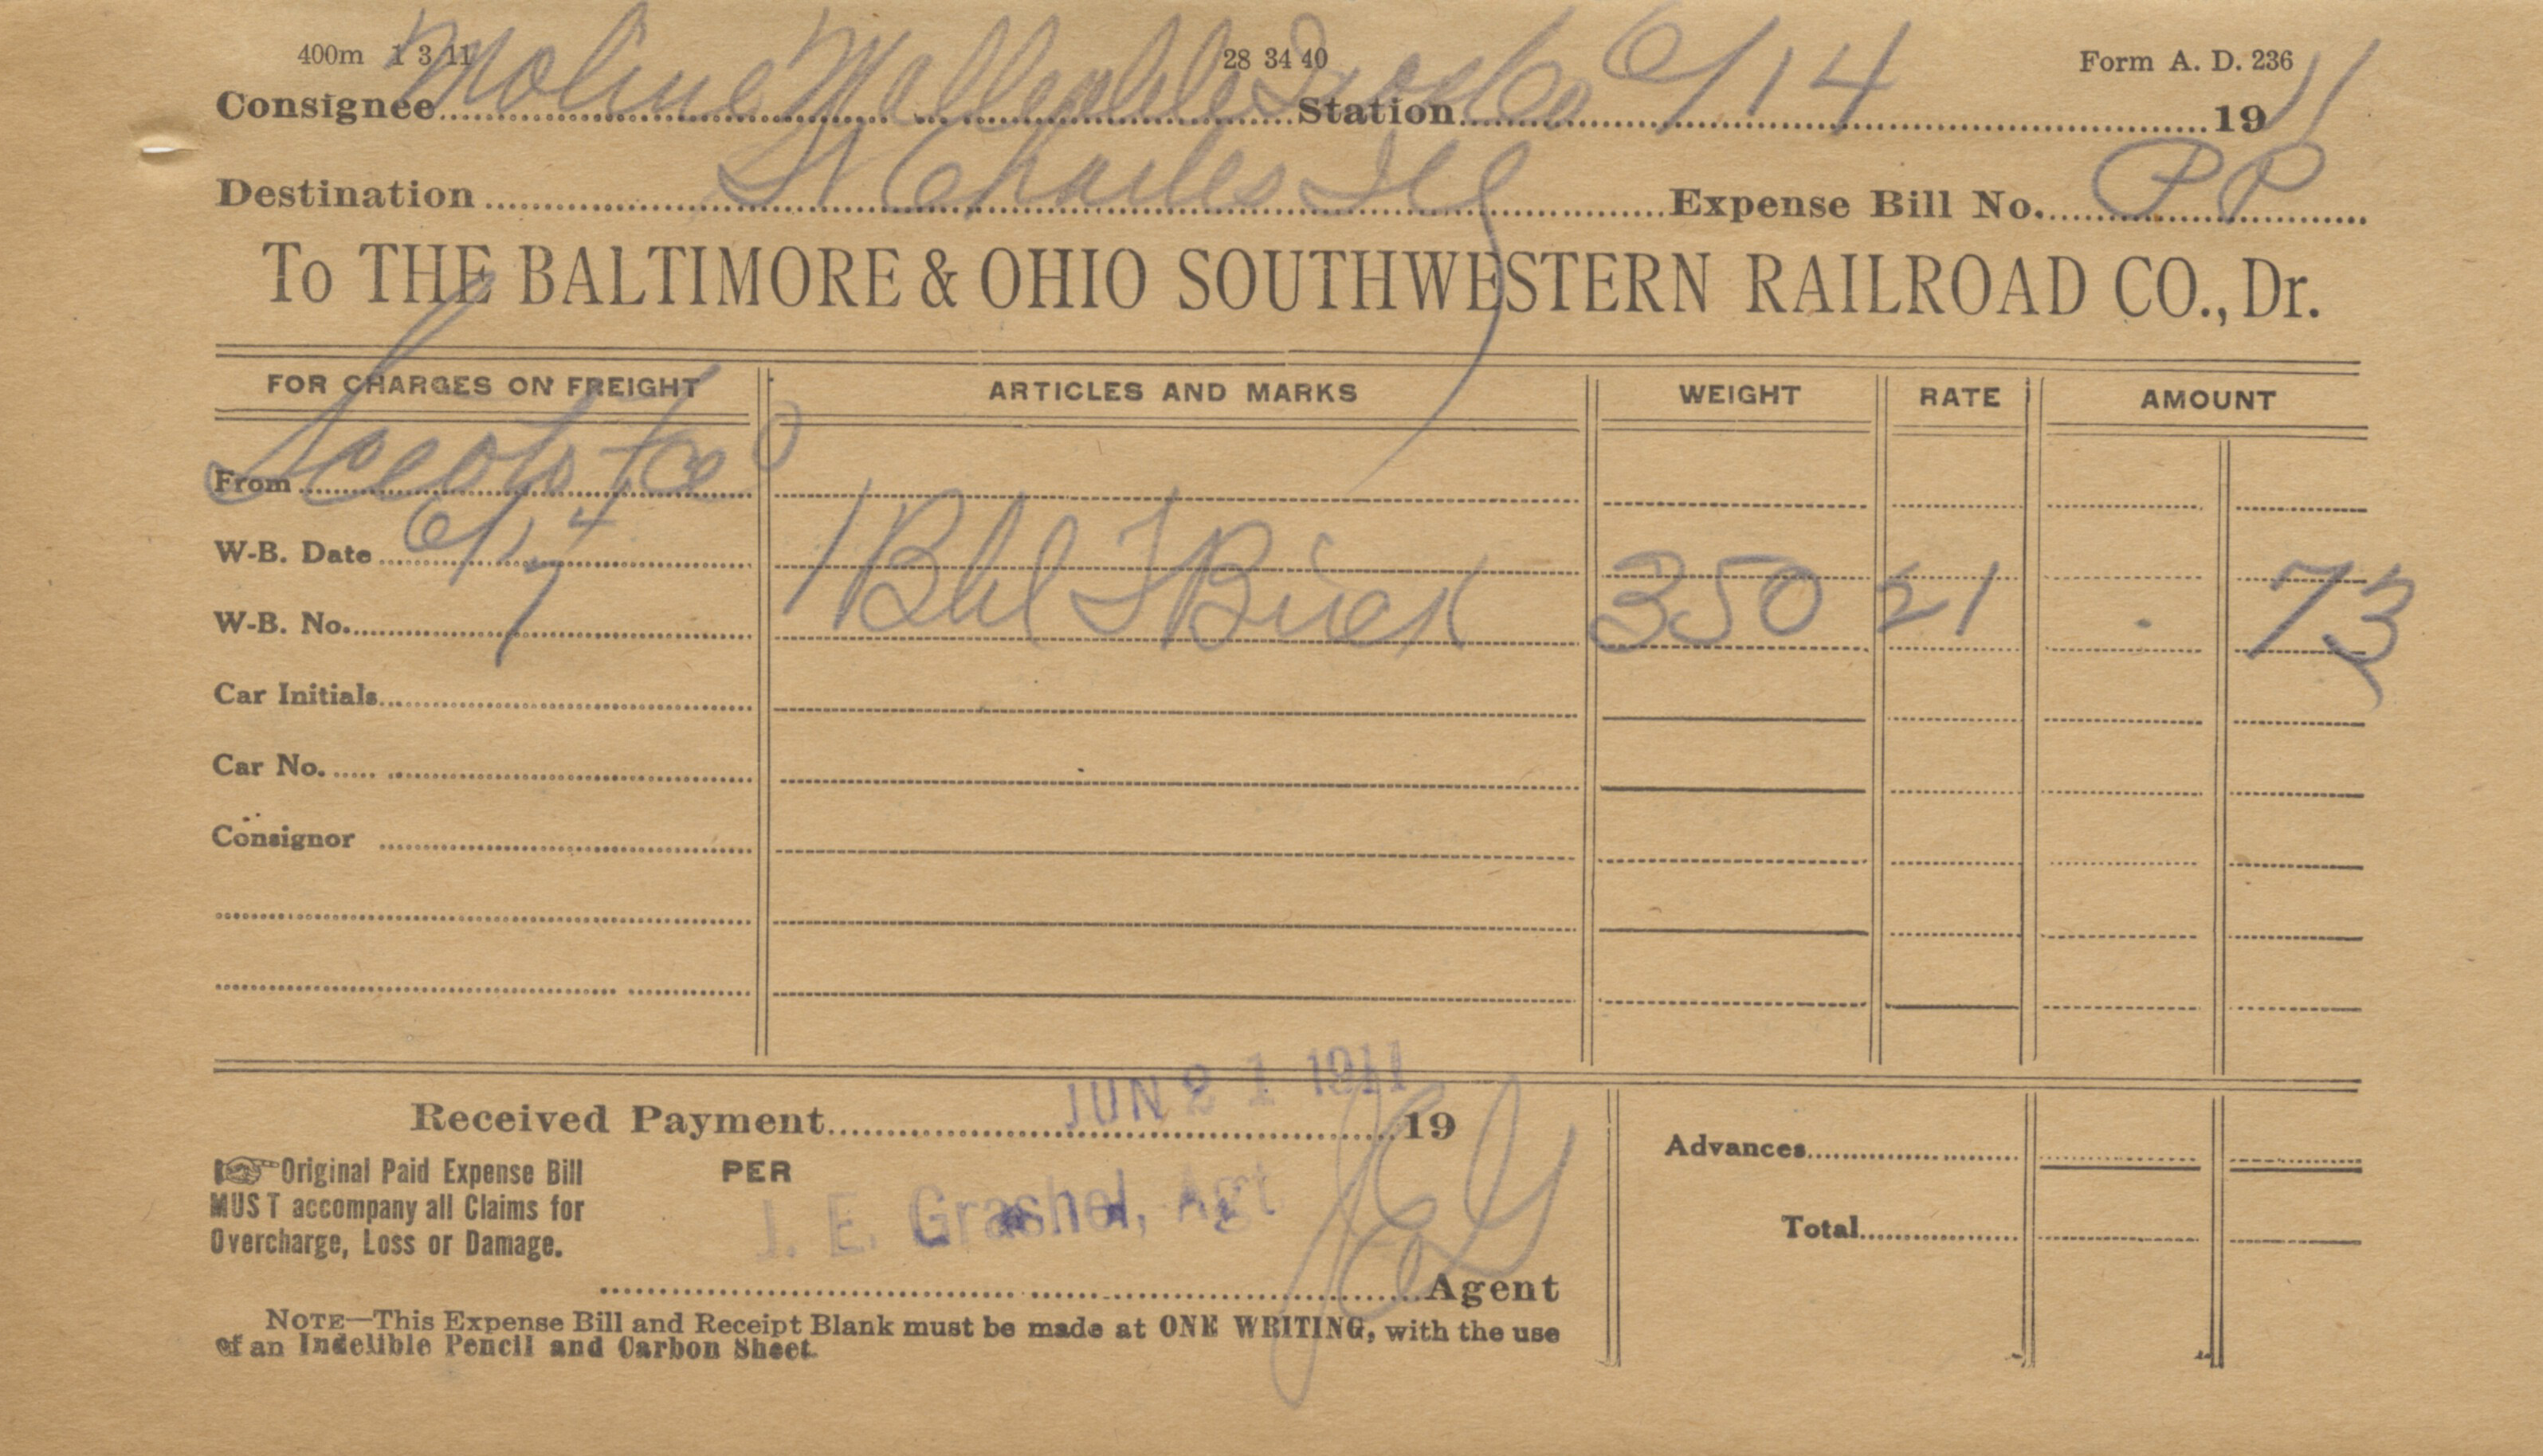 400m 1 3 11 28 34 40 Form A. D. 236
Consignee Moline Malleable Iron Co Station 6/14 1911
Destination St Charles Ill Expense Bill No. PP
To THE BALTIMORE & OHIO SOUTHWESTERN RAILROAD CO., Dr.
FOR CHARGES ON FREIGHT ARTICLES AND MARKS WEIGHT RATE AMOUNT
From
W-B. Date 6/14
W-B. No. 7 1 Bbl F Brick 350 21 . 73
Car Initials
Car No.
Consignor
Received Payment JUN 21 1911 19
Original Paid Expense Bill
MUST accompany all Claims for
Overcharge, Loss or Damage.
PER
J. E. Grashel, Agt
JEG
Agent
Advances
Total
NOTE—This Expense Bill and Receipt Blank must be made at ONE WRITING, with the use
of an Indelible Pencil and Carbon Sheet.